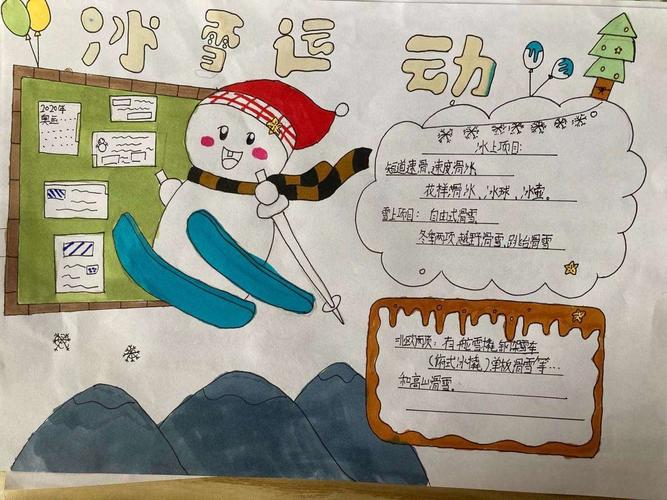 冰雪运动
2020年
奥运....
冰上项目:
短道速滑,速度滑冰
花样滑冰、冰球、冰壶。
雪上项目: 自由式滑雪
冬季两项,越野滑雪,跳台滑雪
北欧两项: 有舵雪橇,钢架雪车
(俯式冰橇)单板滑雪等...
和高山滑雪。